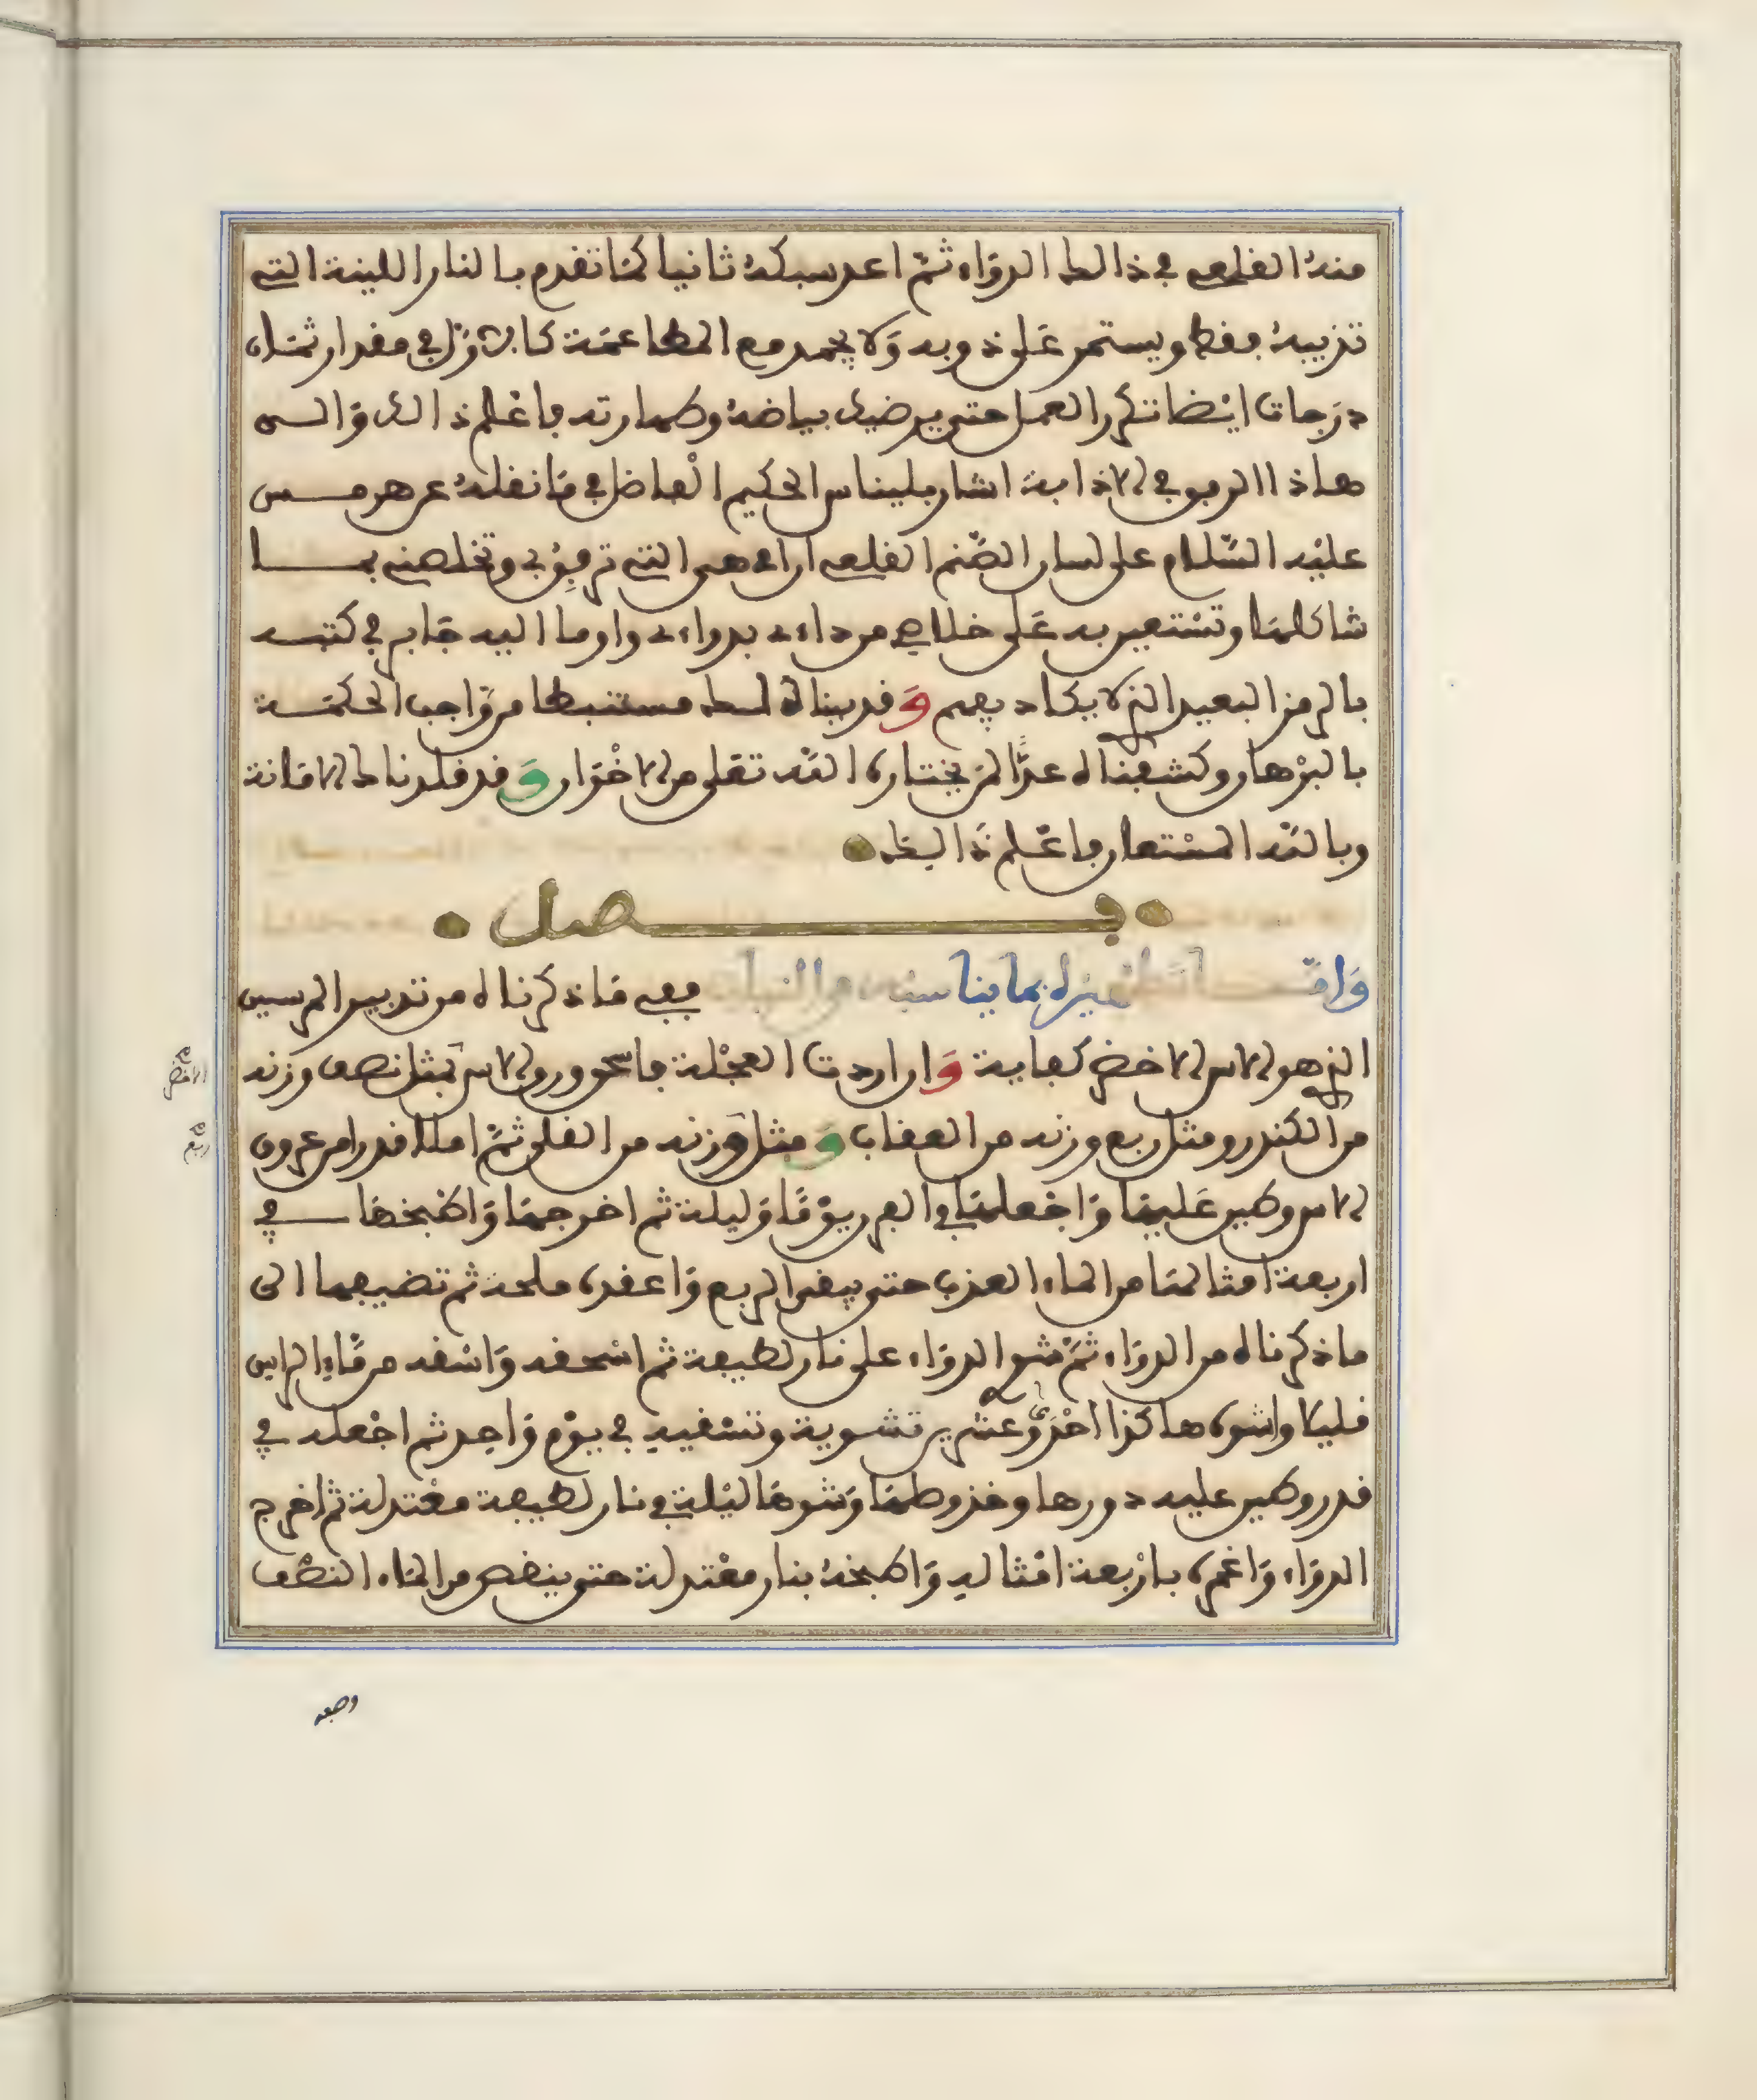 منه القلعي في ذالك الدواء ثم اعد سبكه ثانيا كما تقدم بالنار اللينة التي
تذيبه فقط ويستمر على ذوبه ولا يجمد مع المطاعمة كالاول في مقدار ثمان
درجات ايضا تكرر العمل حتى يرضيك بياضه وطهارته فاعلم ذالك والى
هاذا الرفق في الاذابة اشار بليناس الحكيم الفاضل في ما نقله عن هرمس
عليه السلام على لسان الصنم القلعي ان امي هي التي ترفق بي وتخلصني بما
شاكلها وتستعين به على خلاصي من داءي بدواءي واوما اليه جابر في كتبه
بالرمز البعيد الذي لا يكاد يفهم وقد بيناه لك مستنبطا من واجب الحكمة
بالبرهان وكشفناه عدا لمن يختاره الله تعلى من الاخوان وقد قلدناك الامانة
وبالله المستعان فاعلم ذالك
فصل
واما تطهيره بما يناسبه من النبات ففي ما ذكرناه من تدبير المرسين
الذي هو الاس الاخضر كفاية وان اردت العجلة فاسحق ورق الاس بمثل نصف وزنه
من الكندر ومثل ربع وزنه من العقاب ومثل وزنه من القلى ثم املا قدرا من عروق
الاس وطين عليها واجعلها في الفرن يوما وليلة ثم اخرجها واطبخها في
اربعة امثالها من الماء العذب حتى يبقى الربع واعقده ملحه ثم تضيفها الى
ما ذكرناه من الدواء ثم شو الدواء على نار لطيفة ثم اسحقه واسقه من ماء الراس
قليلا واشوه هاكذا احدى وعشرين تشوية وتسقيه في يوم واحد ثم اجعله في
قدر وطين عليه دورها وخذ وصلها وشوها ليلة في نار لطيفة معتدلة ثم اخرج
الدواء واغمره باربعة امثاله واطبخه بنار معتدلة حتى ينقص من الماء النصف
الاخضر
ربع
وصفه